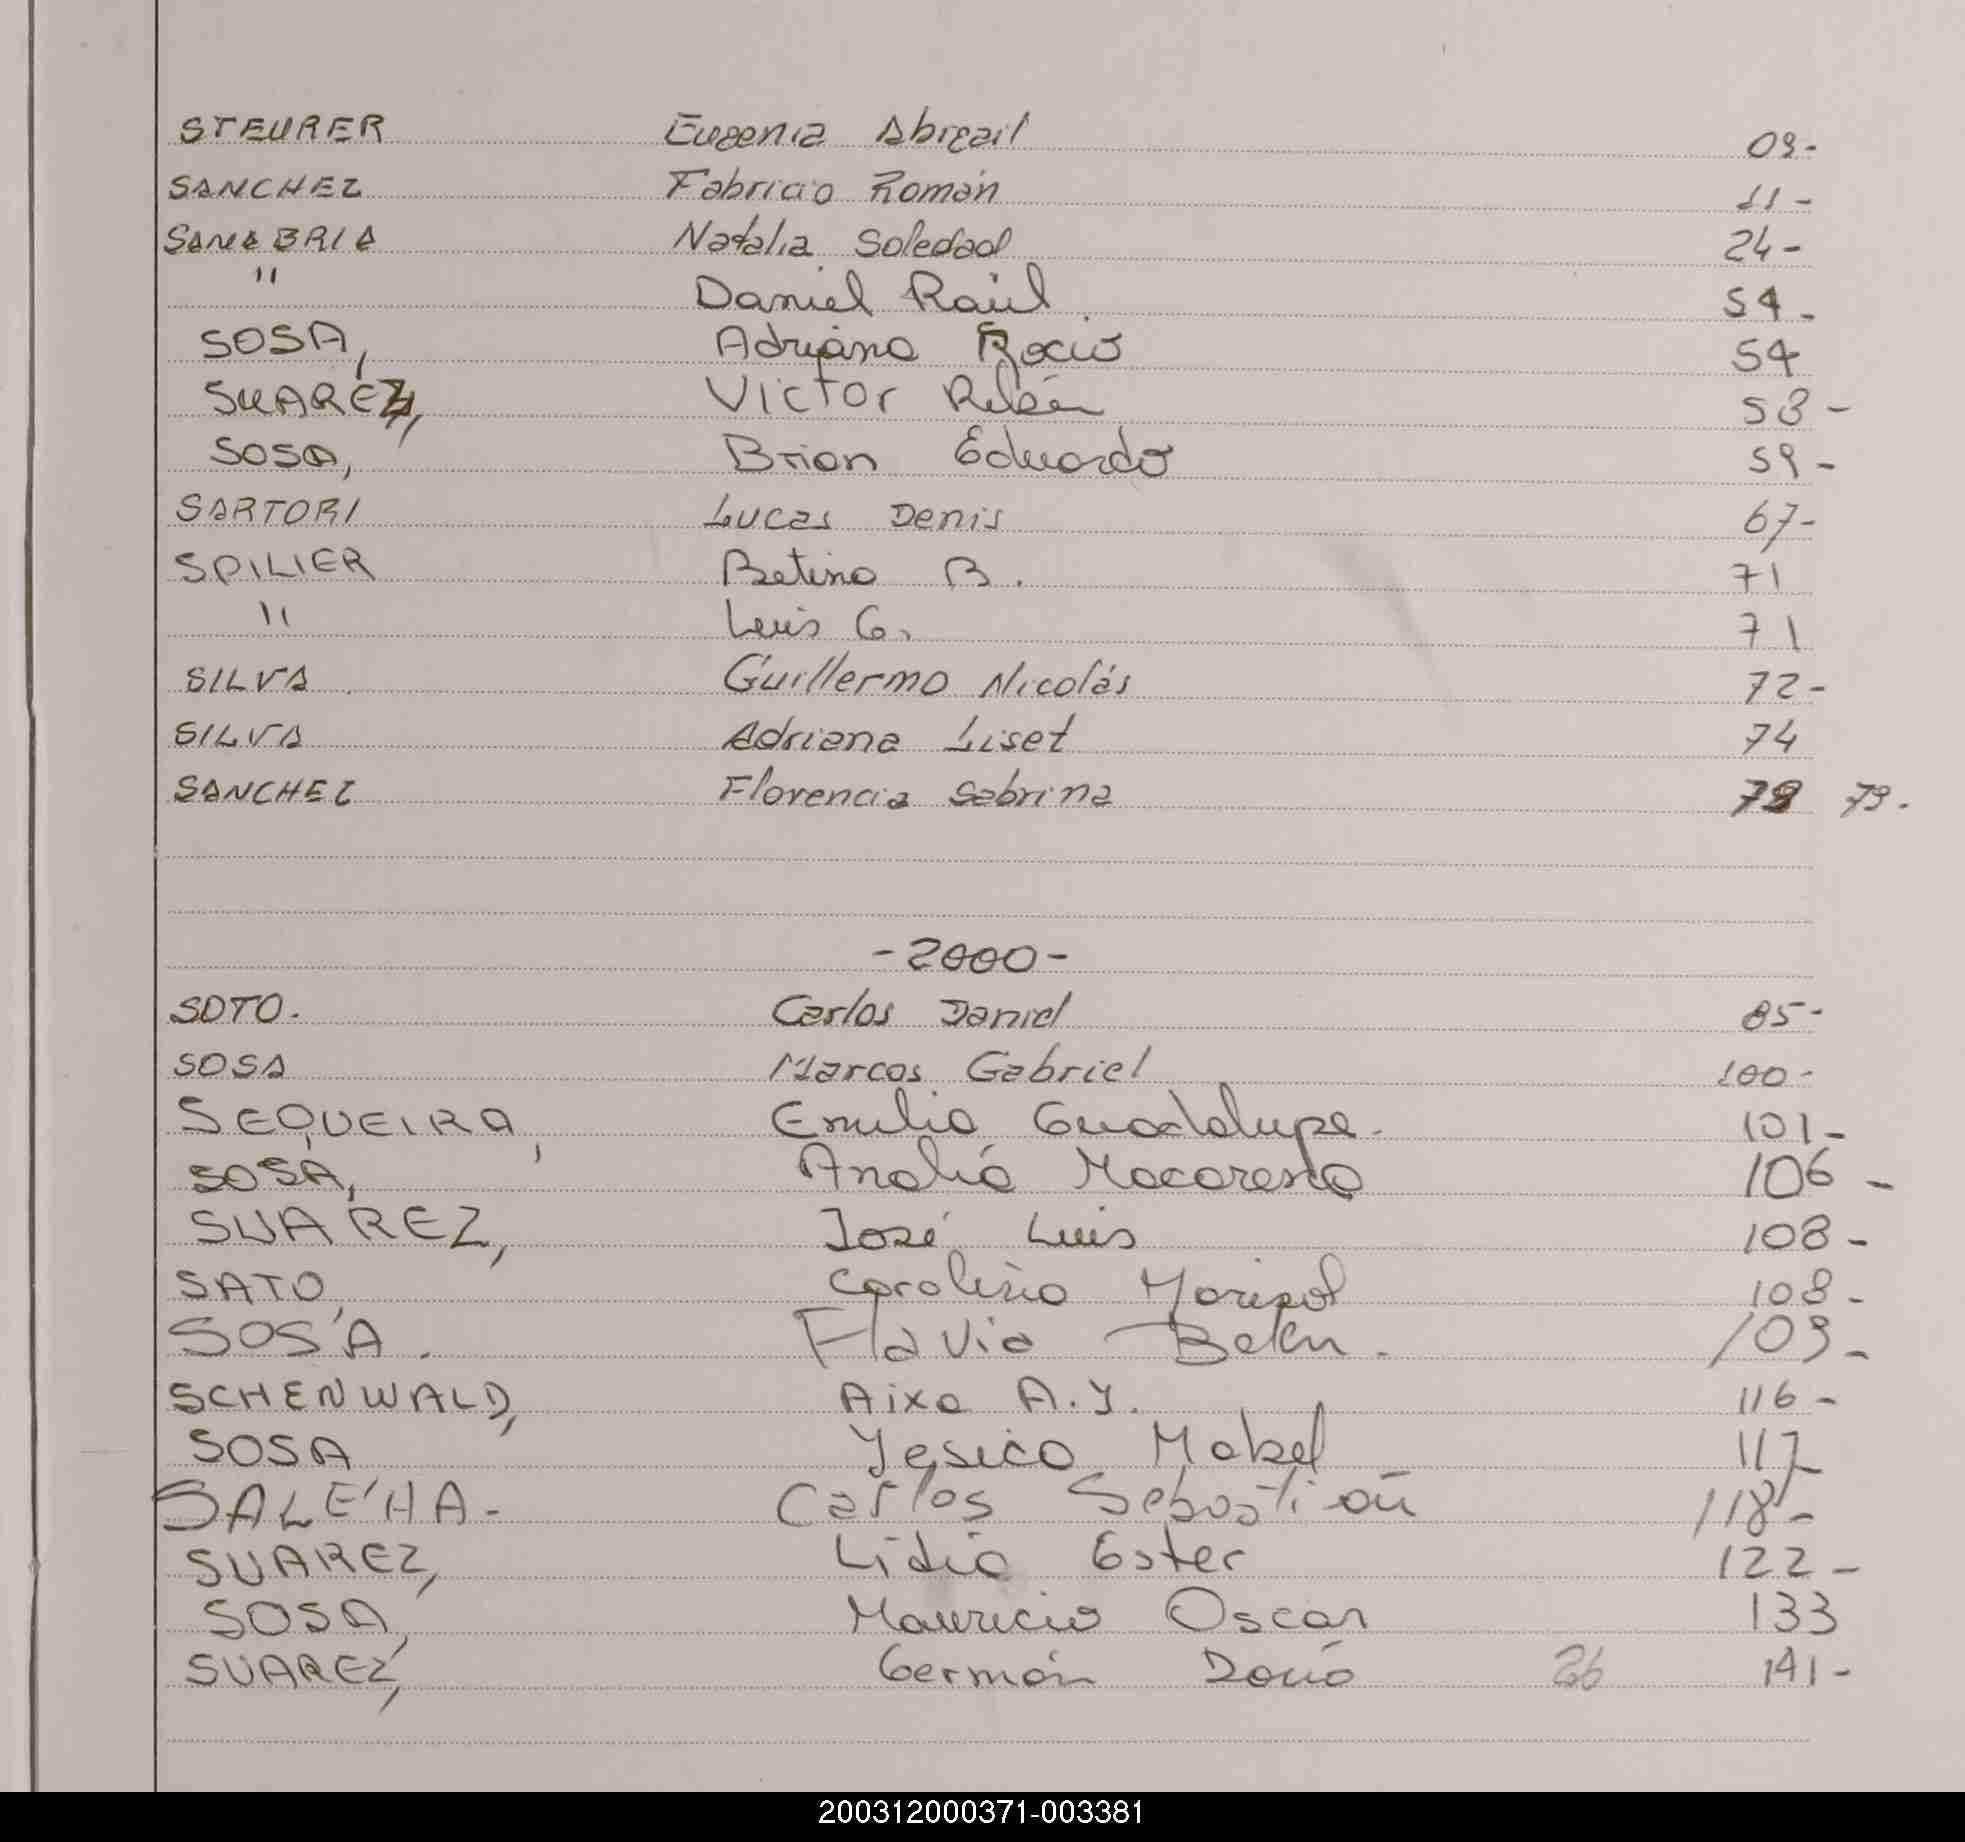 STEURER Eugenia Abigail 09-
SANCHEZ Fabricio Román 11-
SANABRIA Natalia Soledad 24-
" Daniel Raúl 54-
SOSA, Adriana Rocio 54
SUAREZ, Victor Rubén 58-
SOSA, Brian Eduardo 59-
SARTORI Lucas Denis 67-
SPILIER Betina B. 71
" Luis G. 71
SILVA Guillermo Nicolás 72-
SILVA Adriana Liset 74
SANCHEZ Florencia Sabrina 79.
-2000-
SOTO. Carlos Daniel 85-
SOSA Marcos Gabriel 100-
SEQUEIRA, Emilia Guadalupe. 101-
SOSA, Analía Macarena 106-
SUAREZ, José Luis 108-
SATO, Carolina Marisol 108-
SOSA. Flavia Belen. 109-
SCHENWALD, Aixa A.Y. 116-
SOSA Yesica Mabel 117-
SALE'HA- Carlos Sebastián 118-
SUAREZ, Lidia Ester 122-
SOSA, Mauricio Oscar 133
SUAREZ, Germán Darío 26 141-
200312000371-003381